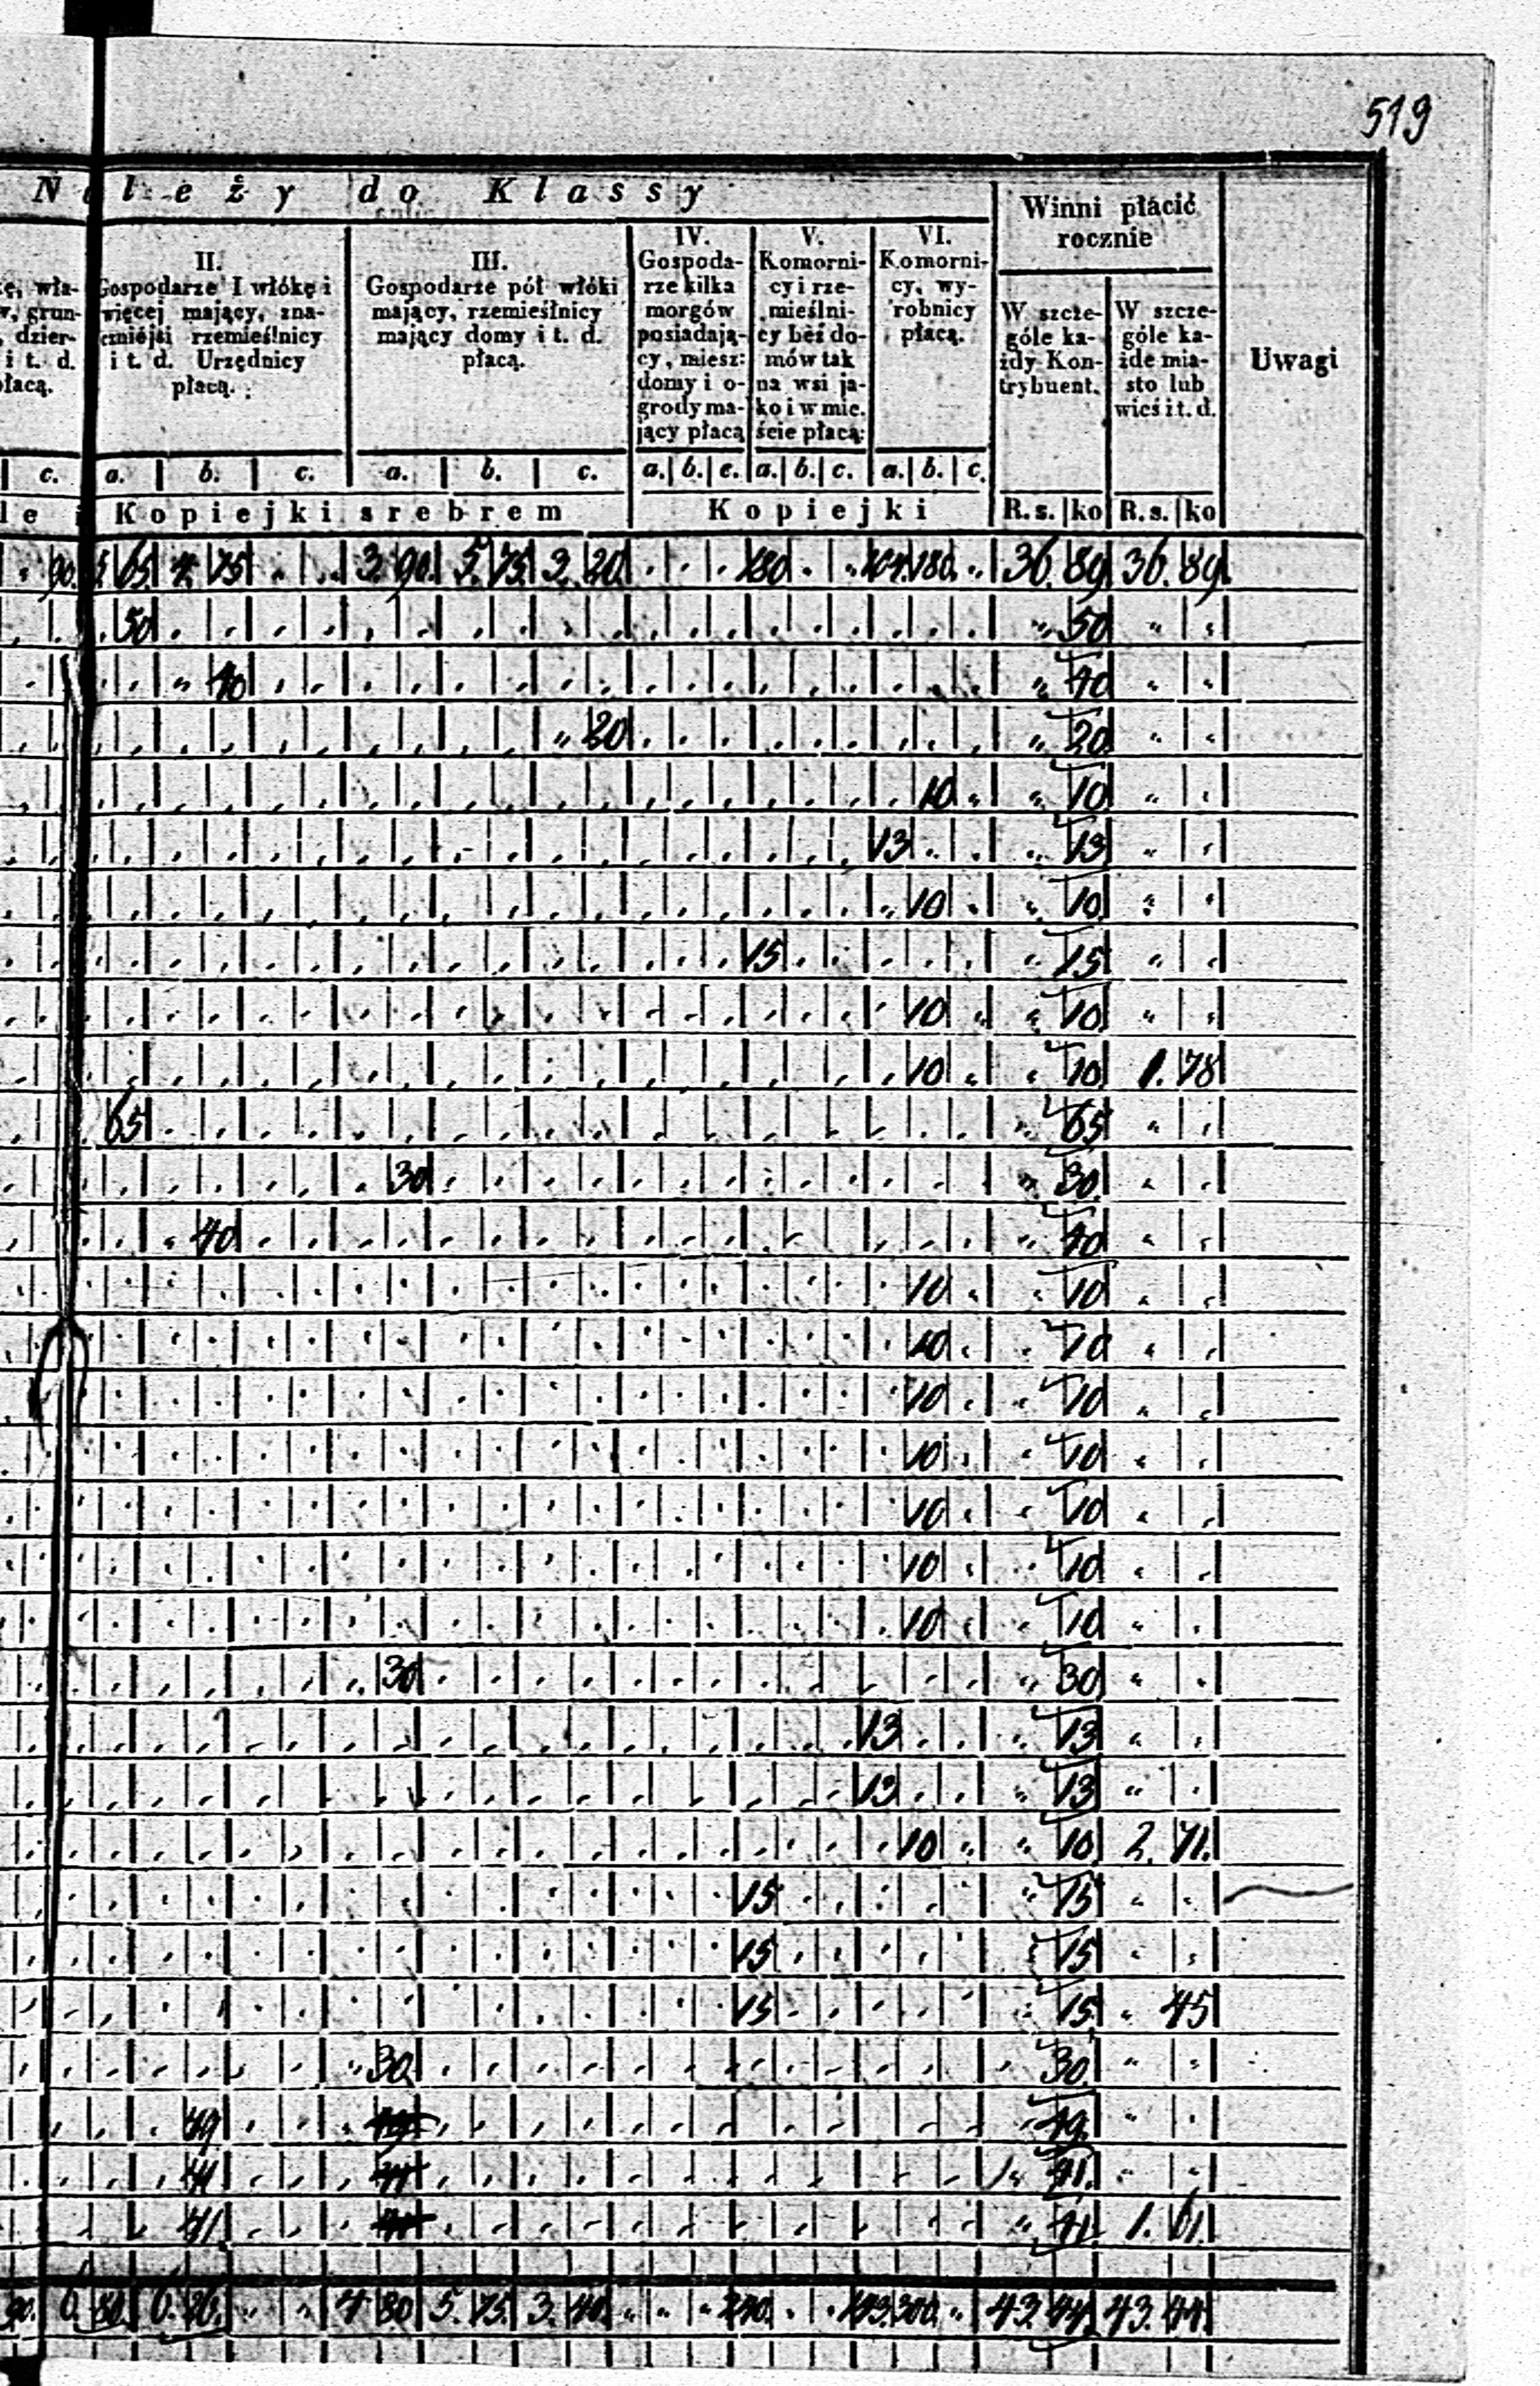 519
Należy do Klassy
Winni płacić
rocznie
Uwagi
kę, wła-
w, grun-
, dzier-
i t. d.
płacą.
II.
Gospodarze I włókę i
więcej mający, zna-
czniejsi rzemieślnicy
i t. d. Urzędnicy
płacą.
III.
Gospodarze pół włóki
mający, rzemieślnicy
mający domy i t. d.
płacą.
IV.
Gospoda-
rze kilka
morgów
posiadają-
cy, miesz:
domy i o-
grody ma-
jący płacą
V.
Komorni-
cy i rze-
mieślni-
cy bez do-
mów tak
na wsi ja-
ko i w mie.
ście płacą:
VI.
Komorni-
cy, wy-
robnicy
płacą.
W szcze-
góle ka-
żdy Kon-
trybuent.
W szcze-
góle ka-
żde mia-
sto lub
wieś i t. d.
c. a. b. c. a. b. c. a. b. c. a. b. c. a. b. c.
le i Kopiejki srebrem Kopiejki R. s. ko R. s. ko
90. 5. 65. 7. 75 3. 90. 5. 75. 3. 20. 180 107. 180. 36. 89. 36. 89.
50 50
40 40
20 20
10 10
13 13
10 10
15 15
10 10
10 10 1. 78
65 65
30 30
40 40
10 10
10 10
10 10
10 10
10 10
10 10
10 10
30 30
13 13
13 13
10 10 2. 71.
15 15
15 15
15 15 45
30 30
49 49 49
41 41 41
41 41 41 1. 61.
90. 6. 80. 6. 4 80 5. 75. 3. 40. 43. 44. 43. 44.